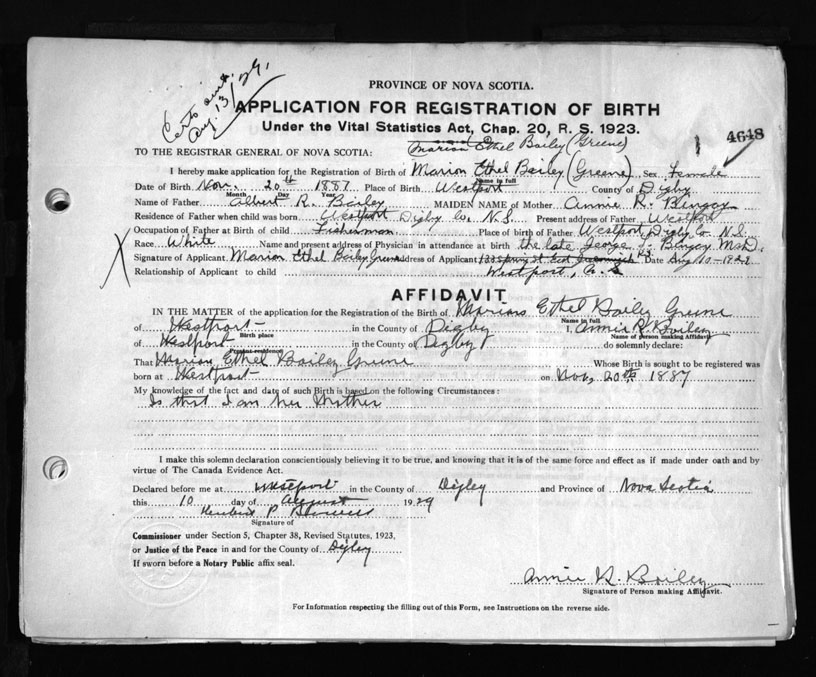 Certs sent.
Aug. 13/29.
PROVINCE OF NOVA SCOTIA.
APPLICATION FOR REGISTRATION OF BIRTH
Under the Vital Statistics Act, Chap. 20, R. S. 1923.
4648
Marion Ethel Baily (Greene)
TO THE REGISTRAR GENERAL OF NOVA SCOTIA:
I hereby make application for the Registration of Birth of Marion Ethel Bailey (Greene) Sex Female
Name in full
Date of Birth Nov. 20th 1887 Place of Birth Westport County of Digby
Month Day Year
Name of Father Albert R. Bailey MAIDEN NAME of Mother Annie R. Bengay
Residence of Father when child was born Westport Digby Co. N.S. Present address of Father Westport
Occupation of Father at Birth of child Fisherman Place of birth of Father Westport, Digby Co N.S.
Race White Name and present address of Physician in attendance at birth the late George Bingay M.D.
Signature of Applicant Marion Ethel Bailey Greene Address of Applicant St East Greenwich R.I. Date Aug 10-1929
Relationship of Applicant to child Westport, N.S
AFFIDAVIT
IN THE MATTER of the application for the Registration of the Birth of Marion Ethel Bailey Greene
Name in full
of Westport in the County of Digby I, Annie R. Bailey
Birth place Name of person making Affidavit
of Westport in the County of Digby do solemnly declare:
Present residence
That Marion Ethel Bailey Greene Whose Birth is sought to be registered was
born at Westport on Nov, 20th 1887
My knowledge of the fact and date of such Birth is based on the following Circumstances:
Is that I am her Mother
I make this solemn declaration conscientiously believing it to be true, and knowing that it is of the same force and effect as if made under oath and by
virtue of The Canada Evidence Act.
Declared before me at Westport in the County of Digby and Province of Nova Scotia
this 10 day of August 1929
Herbert P
Signature of
Commissioner under Section 5, Chapter 38, Revised Statutes, 1923,
or Justice of the Peace in and for the County of Digby
If sworn before a Notary Public affix seal.
Annie R. Bailey
Signature of Person making Affidavit.
For Information respecting the filling out of this Form, see Instructions on the reverse side.